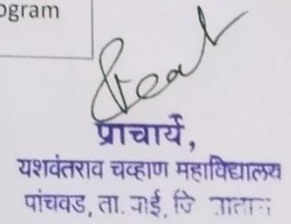 ogram
प्राचार्य,
यशवंतराव चव्हाण महाविद्यालय
पांचवड, ता. वाई, जि